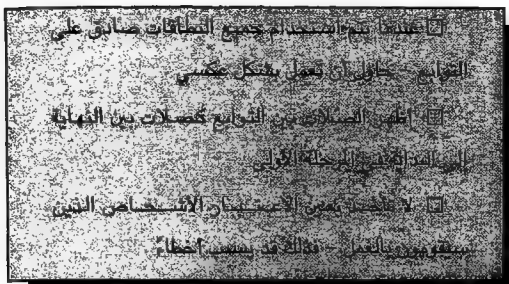 ❑ عندما يتم استخدام جميع البطاقات صادق على
التوابع - حاول أن تعمل بشكل عكسي
❑ أظهر الصلات بين التوابع كصلات بين النهاية
إلى البداية في المرحلة الأولى
❑ لا تأخذ بعين الاعتبار الأشخاص الذين
سيقومون بالعمل - فذلك قد يسبب أخطاءً